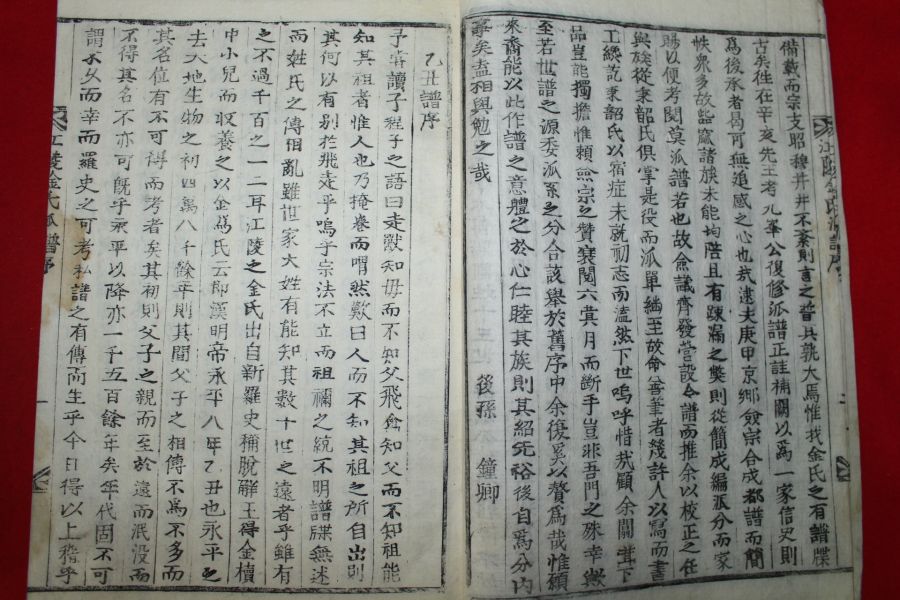 江陵金氏派譜序
備載而宗支昭穆井井不紊則言之譜共孰大焉惟我金氏之有譜牒
古矣徃在辛亥先王考九峯公復修派譜正註補闕以爲一家信史則
爲後承者曷可無追感之心也哉逮夫庚甲京鄉僉宗合成都譜而簡
帙衆多故玆處諸族未能均帙且有踈漏之獘則從簡成編派分而家
賜以便考閱莫派譜若也故僉議齊發營設令譜而推余以校正之任
與族從秉韶氏俱掌是役而派單緬至故命善筆者幾許人以寫而書
工纔訖秉韶氏以宿症未就初志而溘然下世嗚呼惜哉顧余闒茸下
品豈能獨擔惟賴僉宗之贊襄閱六蓂月而斷手豈非吾門之殊幸歟
至若世譜之源委派系之分合該舉於舊序中余復奚以贅爲哉惟願
來裔能以此作譜之意體之於心仁睦其族則其紹先裕後自爲分內
事矣盍相與勉之哉
後孫 鐘卿
乙丑譜序
子甞讀子程子之語曰走獸知母而不知父飛禽知父而不知祖能
知其祖者惟人也乃掩卷而喟然歎曰人而不知其祖之所自出則
其何以有别於飛走乎嗚乎宗法不立而祖禰之統不明譜牒無述
而姓氏之傳相亂雖世家大姓有能知其數十世之遠者乎雖有
之不過千百之一二耳江陵之金氏出自新羅史稱脫解王得金櫝
中小兒而收養之以金爲氏云卽漢明帝永平八年乙丑也永平之
去天地生物之初四萬八千餘年則其間父子之相傳不爲不多而
其名位有不可得而考者矣其初則父子之親而至於遠而泯没而
不得其名不亦可旣乎永平以降亦一千五百餘年矣年代固不可
謂不久而幸而羅史之可考私譜之有傳而生乎今日得以上稽乎
江陵金氏派譜序
一